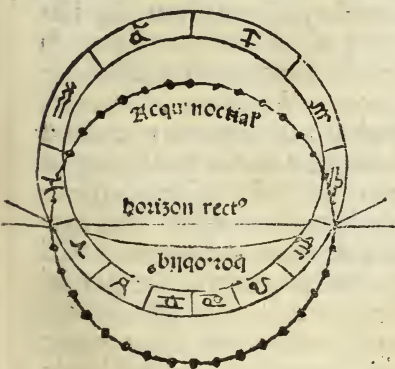 Aequinoctial
horizon rectꝰ
hor. obliqꝰ